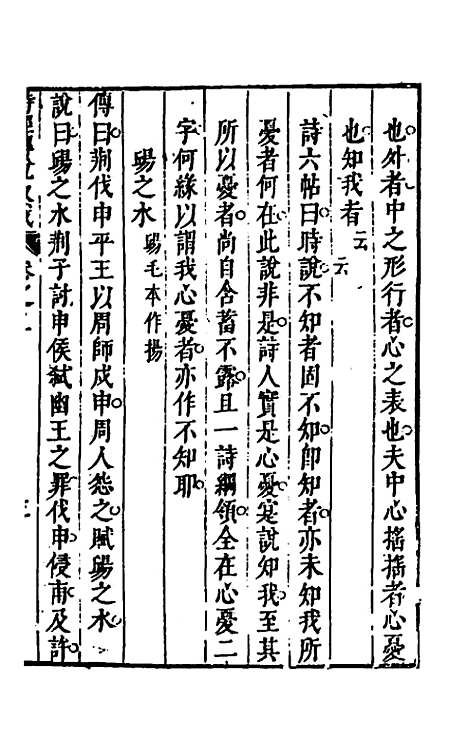 也外者中之形行者心之表也夫中心搖搖者心憂
也知我者云云
詩六帖曰時說不知者固不知卽知者亦未知我所
憂者何在此說非是詩人實是心憂寔說知我至其
所以憂者尚自含蓄不露且一詩綱領全在心憂二
字何緣以謂我心憂者亦作不知耶
昜之水昜毛本作揚
傳曰荆伐申平王以周師戍申周人怨之賦昜之水
說曰昜之水荆子討申侯弑幽王之罪伐申侵甫及許